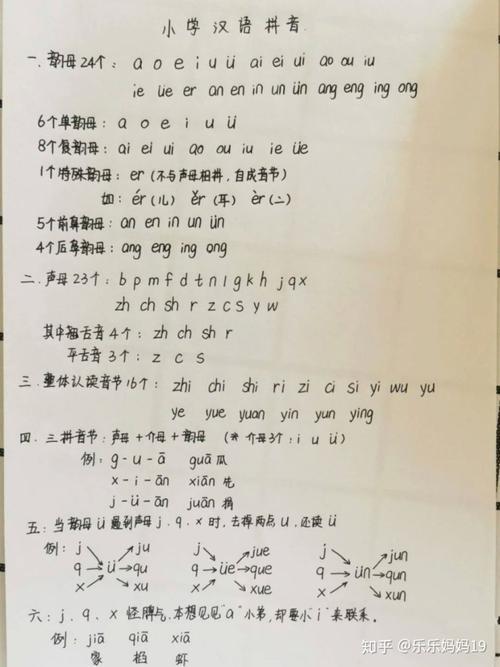 小学汉语拼音
一.韵母24个: a o e i u ü ai ei ui ao ou iu
ie üe er an en in un ün ang eng ing ong
6个单韵母: a o e i u ü
8个复韵母: ai ei ui ao ou iu ie üe
1个特殊韵母: er (不与声母相拼,自成音节)
如: ér(儿) ěr(耳) èr(二)
5个前鼻韵母: an en in un ün
4个后鼻韵母: ang eng ing ong
二.声母23个: b p m f d t n l g k h j q x
zh ch sh r z c s y w
其中翘舌音4个: zh ch sh r
平舌音3个: z c s
三.整体认读音节16个: zhi chi shi ri zi ci si yi wu yu
ye yue yuan yin yun ying
四.三拼音节:声母+介母+韵母 (* 介母3个: i u ü)
例: g-u-ā guā 瓜
x-i-ān xiān 先
j-ü-ān juān 捐
五:当韵母ü遇到声母j.q.x时,去掉两点u,还读ü
例: j q x → ü → ju qu xu j q x → üe → jue que xue j q x → ün → jun qun xun
六:j.q.x 怪脾气,本想见见"a"小弟,却要小"i"来联系。
例: jiā qiā xiā
家 掐 虾
知乎 @乐乐妈妈19